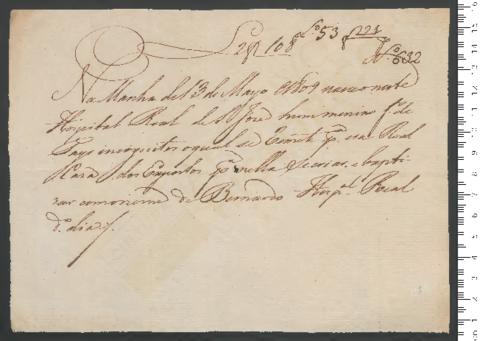 Lº 53 f 221
Nº 632
Na Manha de 13 de Mayo 1809 nasceo neste
Hospital Real de S. Jozé hum menino fº de
Pays incognitos o qual se remete pª esa Real
Caza dos Expostos pª nella se criar, e bapti
zar com o nome de Bernardo Hospal Real
dº dia